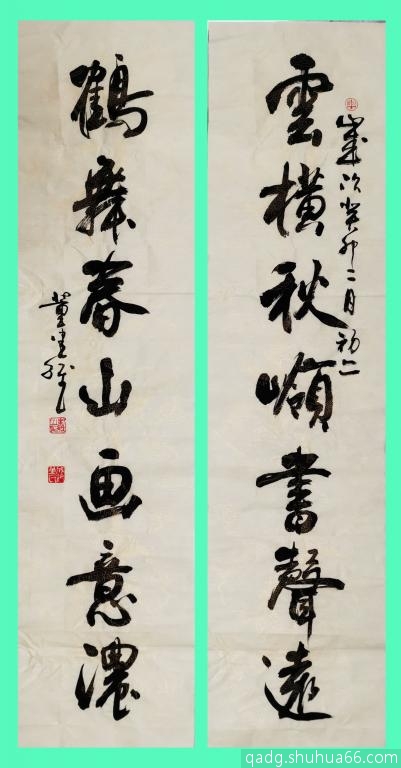 歲次癸卯二月初二
雲橫秋嶺書聲遠
鶴舞春山画意濃
董
qadg.shuhua66.com